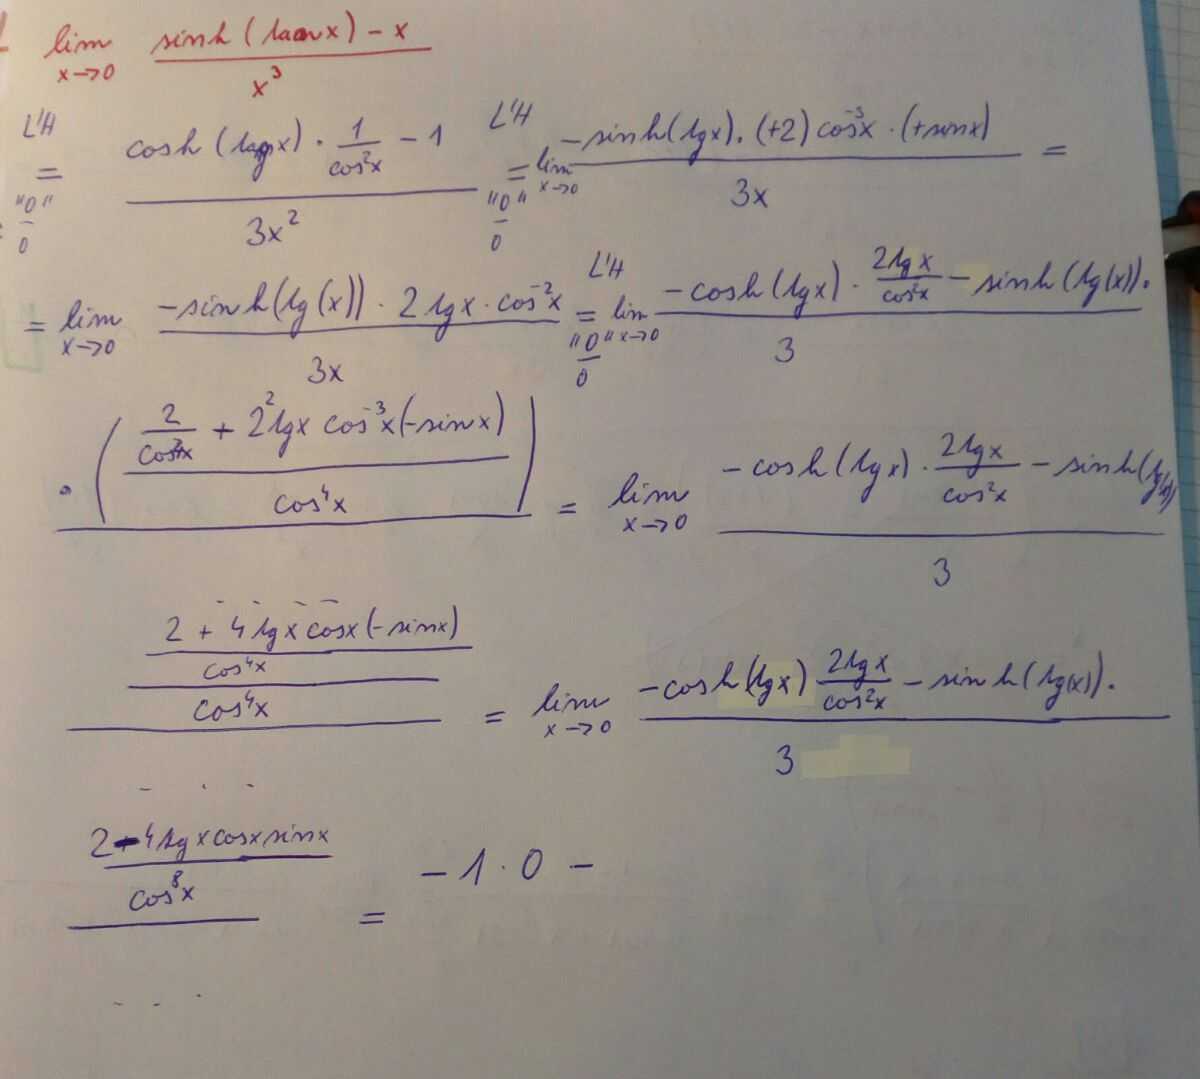 lim x→0 (sinh(tan x) - x) / x³
L'H = "0/0" (cosh(tg x) · 1/cos²x - 1) / 3x² L'H = "0/0" lim x→0 (-sinh(tg x) · (+2) cos⁻³x · (+sin x)) / 3x =
= lim x→0 (-sinh(tg(x)) · 2 tg x · cos⁻²x) / 3x L'H = "0/0" lim x→0 (-cosh(tg x) · 2 tg x/cos²x - sinh(tg(x)) ·) / 3
· ((2/cos²x + 2² tg x cos⁻³x (-sin x)) / cos⁴x) = lim x→0 (-cosh(tg x) · 2 tg x/cos²x - sinh(tg(x))) / 3
(((2 + 4 tg x cos x (-sin x)) / cos⁴x) / cos⁴x) = lim x→0 (-cosh(tg x) 2 tg x/cos²x - sinh(tg(x)) ·) / 3
((2 - 4 tg x cos x sin x) / cos⁸x) = - 1 · 0 -